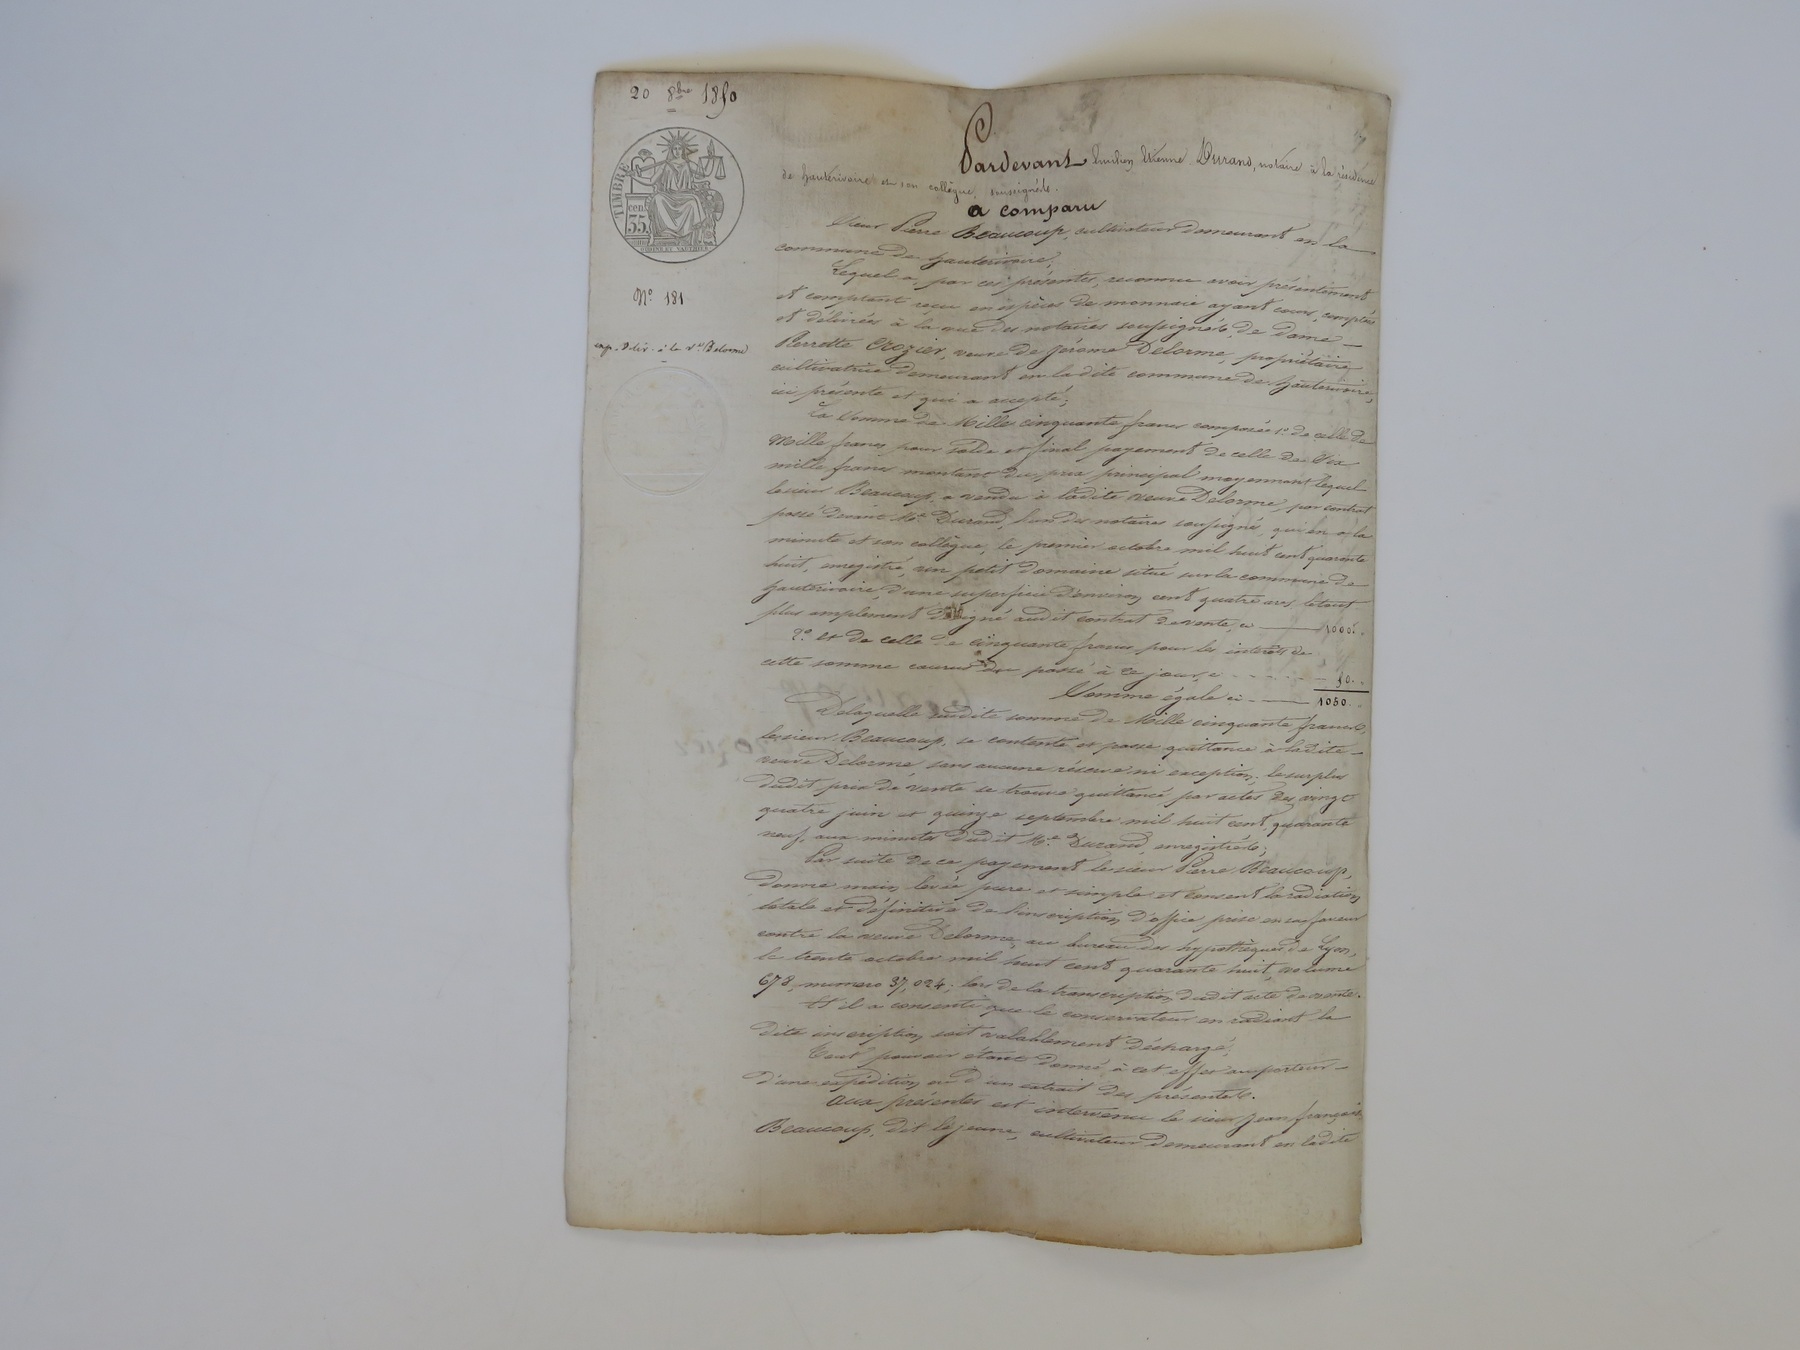 20 8bre 1850
TIMBRE
cen.
35
N° 181
exp. déliv. à la Ve Delorme
Pardevant Emilien Etienne Durand, notaire à la résidence
de hauterivoire et son collègue, soussignés.
a comparu
Sieur Pierre Beaucoup, cultivateur demeurant en la
commune de hauterivoire,
Lequel a, par ces présentes, reconnu avoir présentement
et comptant reçu en espèces de monnaie ayant cours, comptées
et délivrées à la vue des notaires soussignés, de dame
Pierrette Crozier, veuve de Jérome Delorme, propriétaire
cultivatrice demeurant en ladite commune de hauterivoire,
ici présente et qui a accepté;
La Somme de Mille cinquante francs composée 1° de celle de
Mille francs pour solde et final payement de celle de Six
mille francs montant du prix principal moyennant lequel
le sieur Beaucoup, a vendu à ladite veuve Delorme, par contrat
passé devant Me Durand, l'un des notaires soussigné, qui en a la
minute et son collègue, le premier octobre mil huit cent quarante
huit, enregistré, un petit domaine situé sur la commune de
hauterivoire, d'une superficie d'environ cent quatre ares, le tout
plus amplement désigné audit contrat de vente, ci 1000.
2° et de celle de cinquante francs pour les intérêts de
cette somme courus du passé à ce jour, ci 50.
Somme égale ci 1050.
De laquelle susdite somme de Mille cinquante francs,
le sieur Beaucoup, se contente et passe quittance à ladite
veuve Delorme sans aucune réserve ni exception, le surplus
dudit prix de vente se trouve quittancé par actes des vingt
quatre juin et quinze septembre mil huit cent quarante
neuf, aux minutes dudit Me Durand, enregistrés;
Par suite de ce payement le sieur Pierre Beaucoup,
donne main levée pure et simple et consent la radiation
totale et définitive de l'inscription d'office prise en sa faveur
contre la veuve Delorme, au bureau des hypothèques de Lyon,
le trente octobre mil huit cent quarante huit, volume
678, numéro 37,024, lors de la transcription dudit acte de vente.
Et il a consenti que le conservateur en radiant la
dite inscription soit valablement déchargé.
Tout pouvoir étant donné à cet effet au porteur
d'une expédition ou d'un extrait des présentes.
Aux présentes est intervenu le sieur Jean françois
Beaucoup, dit le jeune, cultivateur demeurant en ladite